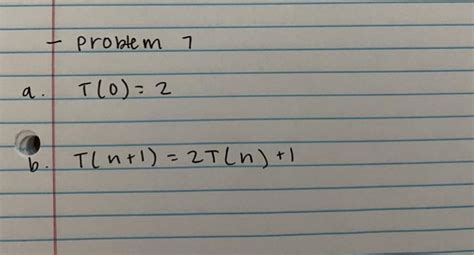 - problem 7
a. T(0) = 2
b. T(n+1) = 2T(n) +1